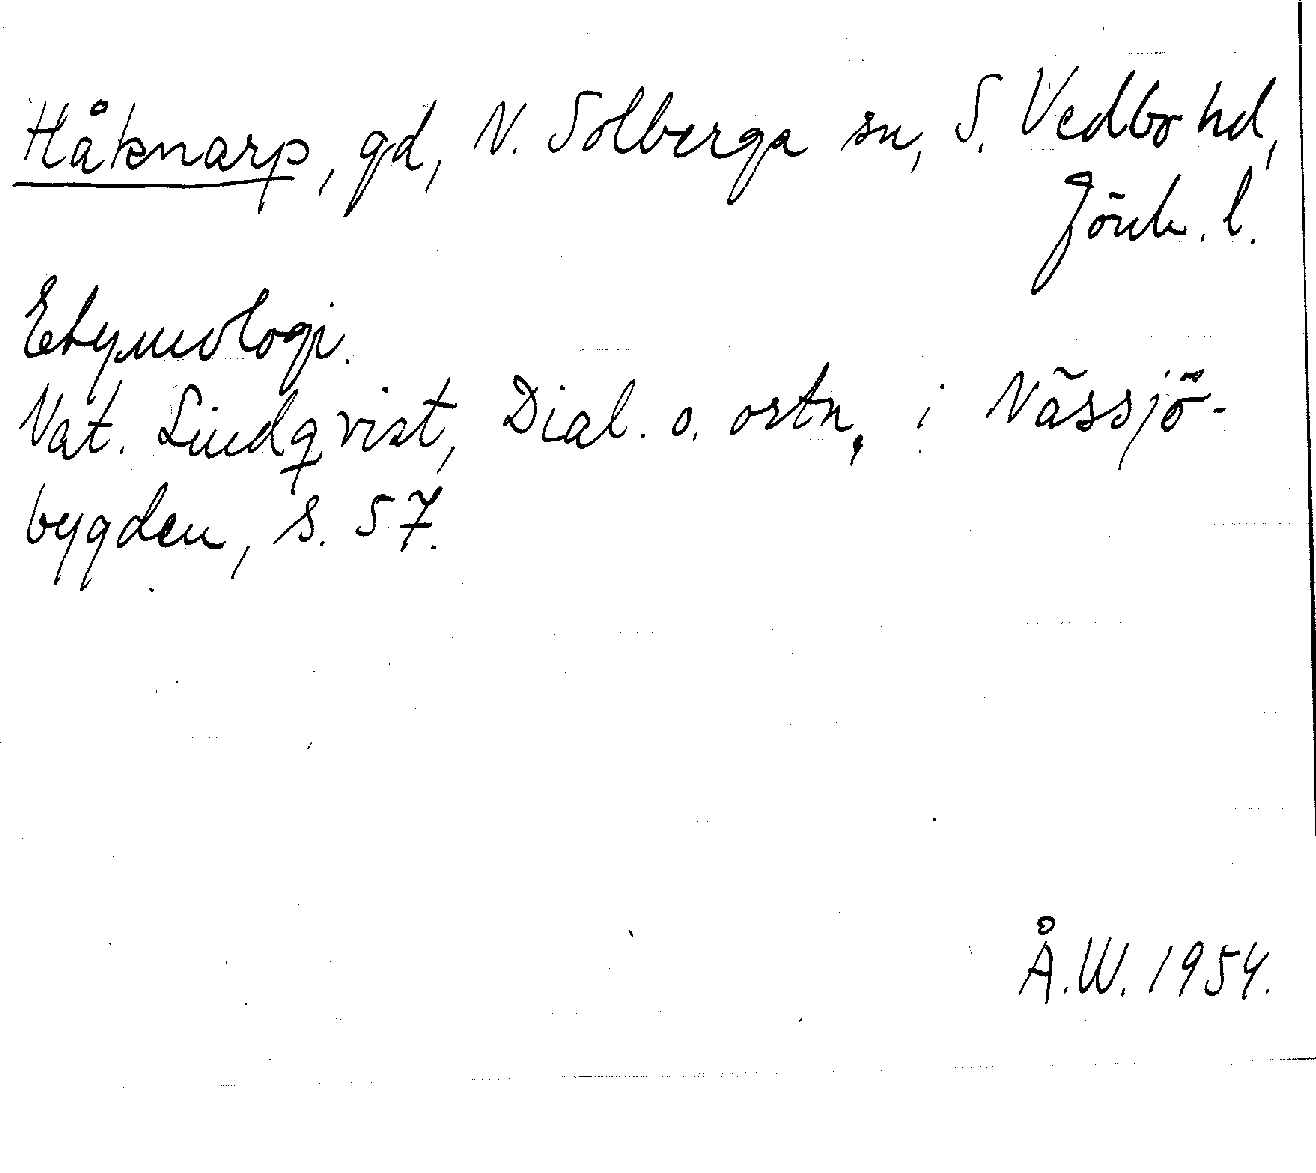 Håknarp, gd, N. Solberga sn, S. Vedbo hd,
Jönk. l.
Etymologi.
Nat. Lindqvist, Dial. o. ortn. i Nässjö-
bygden, s. 57.
Å.W. 1954.